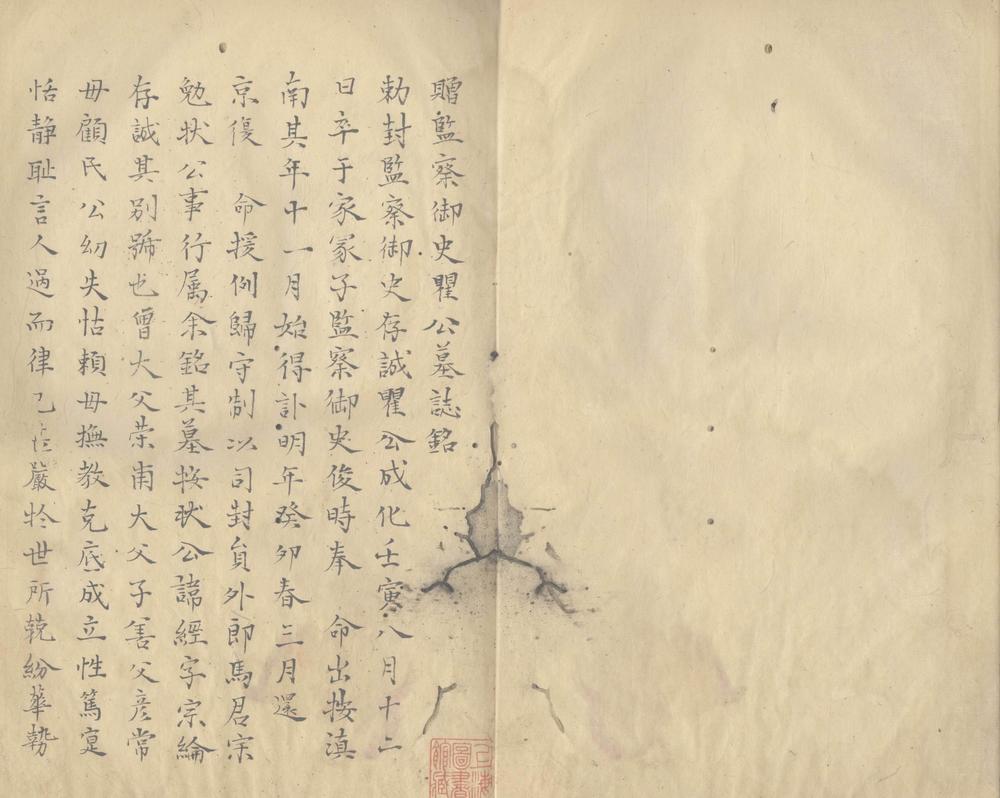 贈監察御史瞿公墓誌銘
勅封監察御史存誠瞿公成化壬寅八月十二
日卒于家冡子監察御史俊時奉 命出按滇
南其年十一月始得訃明年癸卯春三月還
京復 命援例歸守制以司封貟外郎馬君宗
勉状公事行属余銘其墓按状公諱經字宗綸
存誠其别號也曾大父荣甫大父子善父彦常
母顧氏公幼失怙頼母撫教克底成立性篤寔
恬静耻言人過而律己嚴扵世所䡖紛華勢
上海圖書館藏